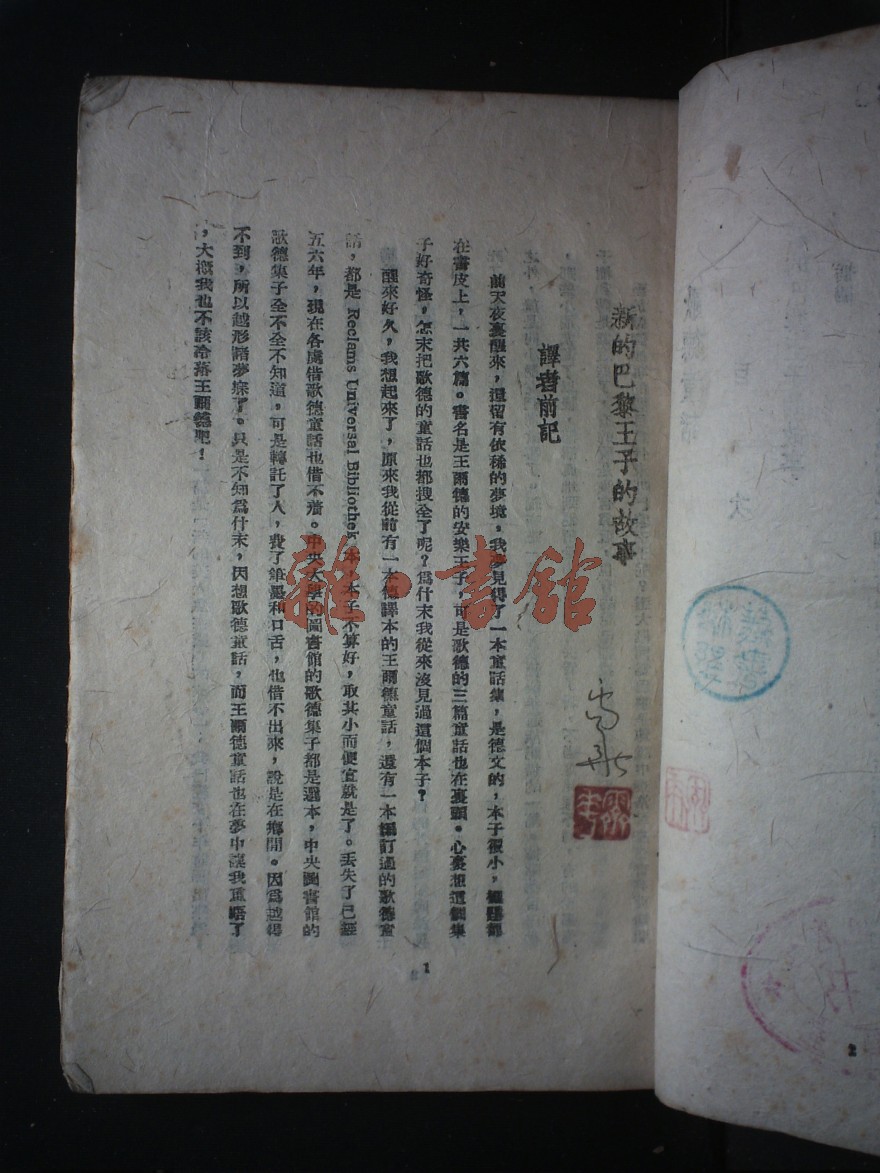 新的巴黎王子的故事
譯者前記
前天夜裏醒來，還留有依稀的夢境。我夢見得了一本童話集，是德文的，本子很小，
在書皮上，一共六篇。書名是王爾德的安樂王子，可是歌德的三篇童話也在裏頭。心裏想這個集
子好奇怪，怎末把歌德的童話也都搜全了呢？爲什末我從來沒見過這個本子？
醒來好久，我想起來了，原來我從前有一本德譯本的王爾德童話，還有一本訂過的歌德童
話，都是 Reclams Universal Bibliothek 本，本子不算好，取其小而便宜就是了。丟失了已經
五六年，現在各處借歌德童話也借不着。中央大學的圖書館的歌德集子都是選本，中央圖書館的
歌德集子全不全不知道，可是轉託了人，費了筆墨和口舌，也借不出來，說是在鄉間。因爲越得
不到，所以越形諸夢寐了。只是不知爲什末，因想歌德童話，而王爾德童話也在夢中讓我重晤了
，大概我也不該冷落王爾德吧！
1
2
雜·書館